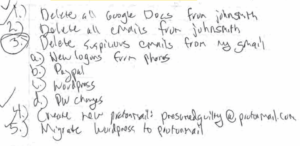 1.) Delete all Google Docs from johnsmith
2.) Delete all emails from johnsmith
3.) Delete suspicious emails from my gmail
a.) New logons from phones
b.) Paypal
c.) Wordpress
d.) PW changes
4.) Create new protonmail: presonedguilty@protonmail.com
5.) Migrate wordpress to protonmail